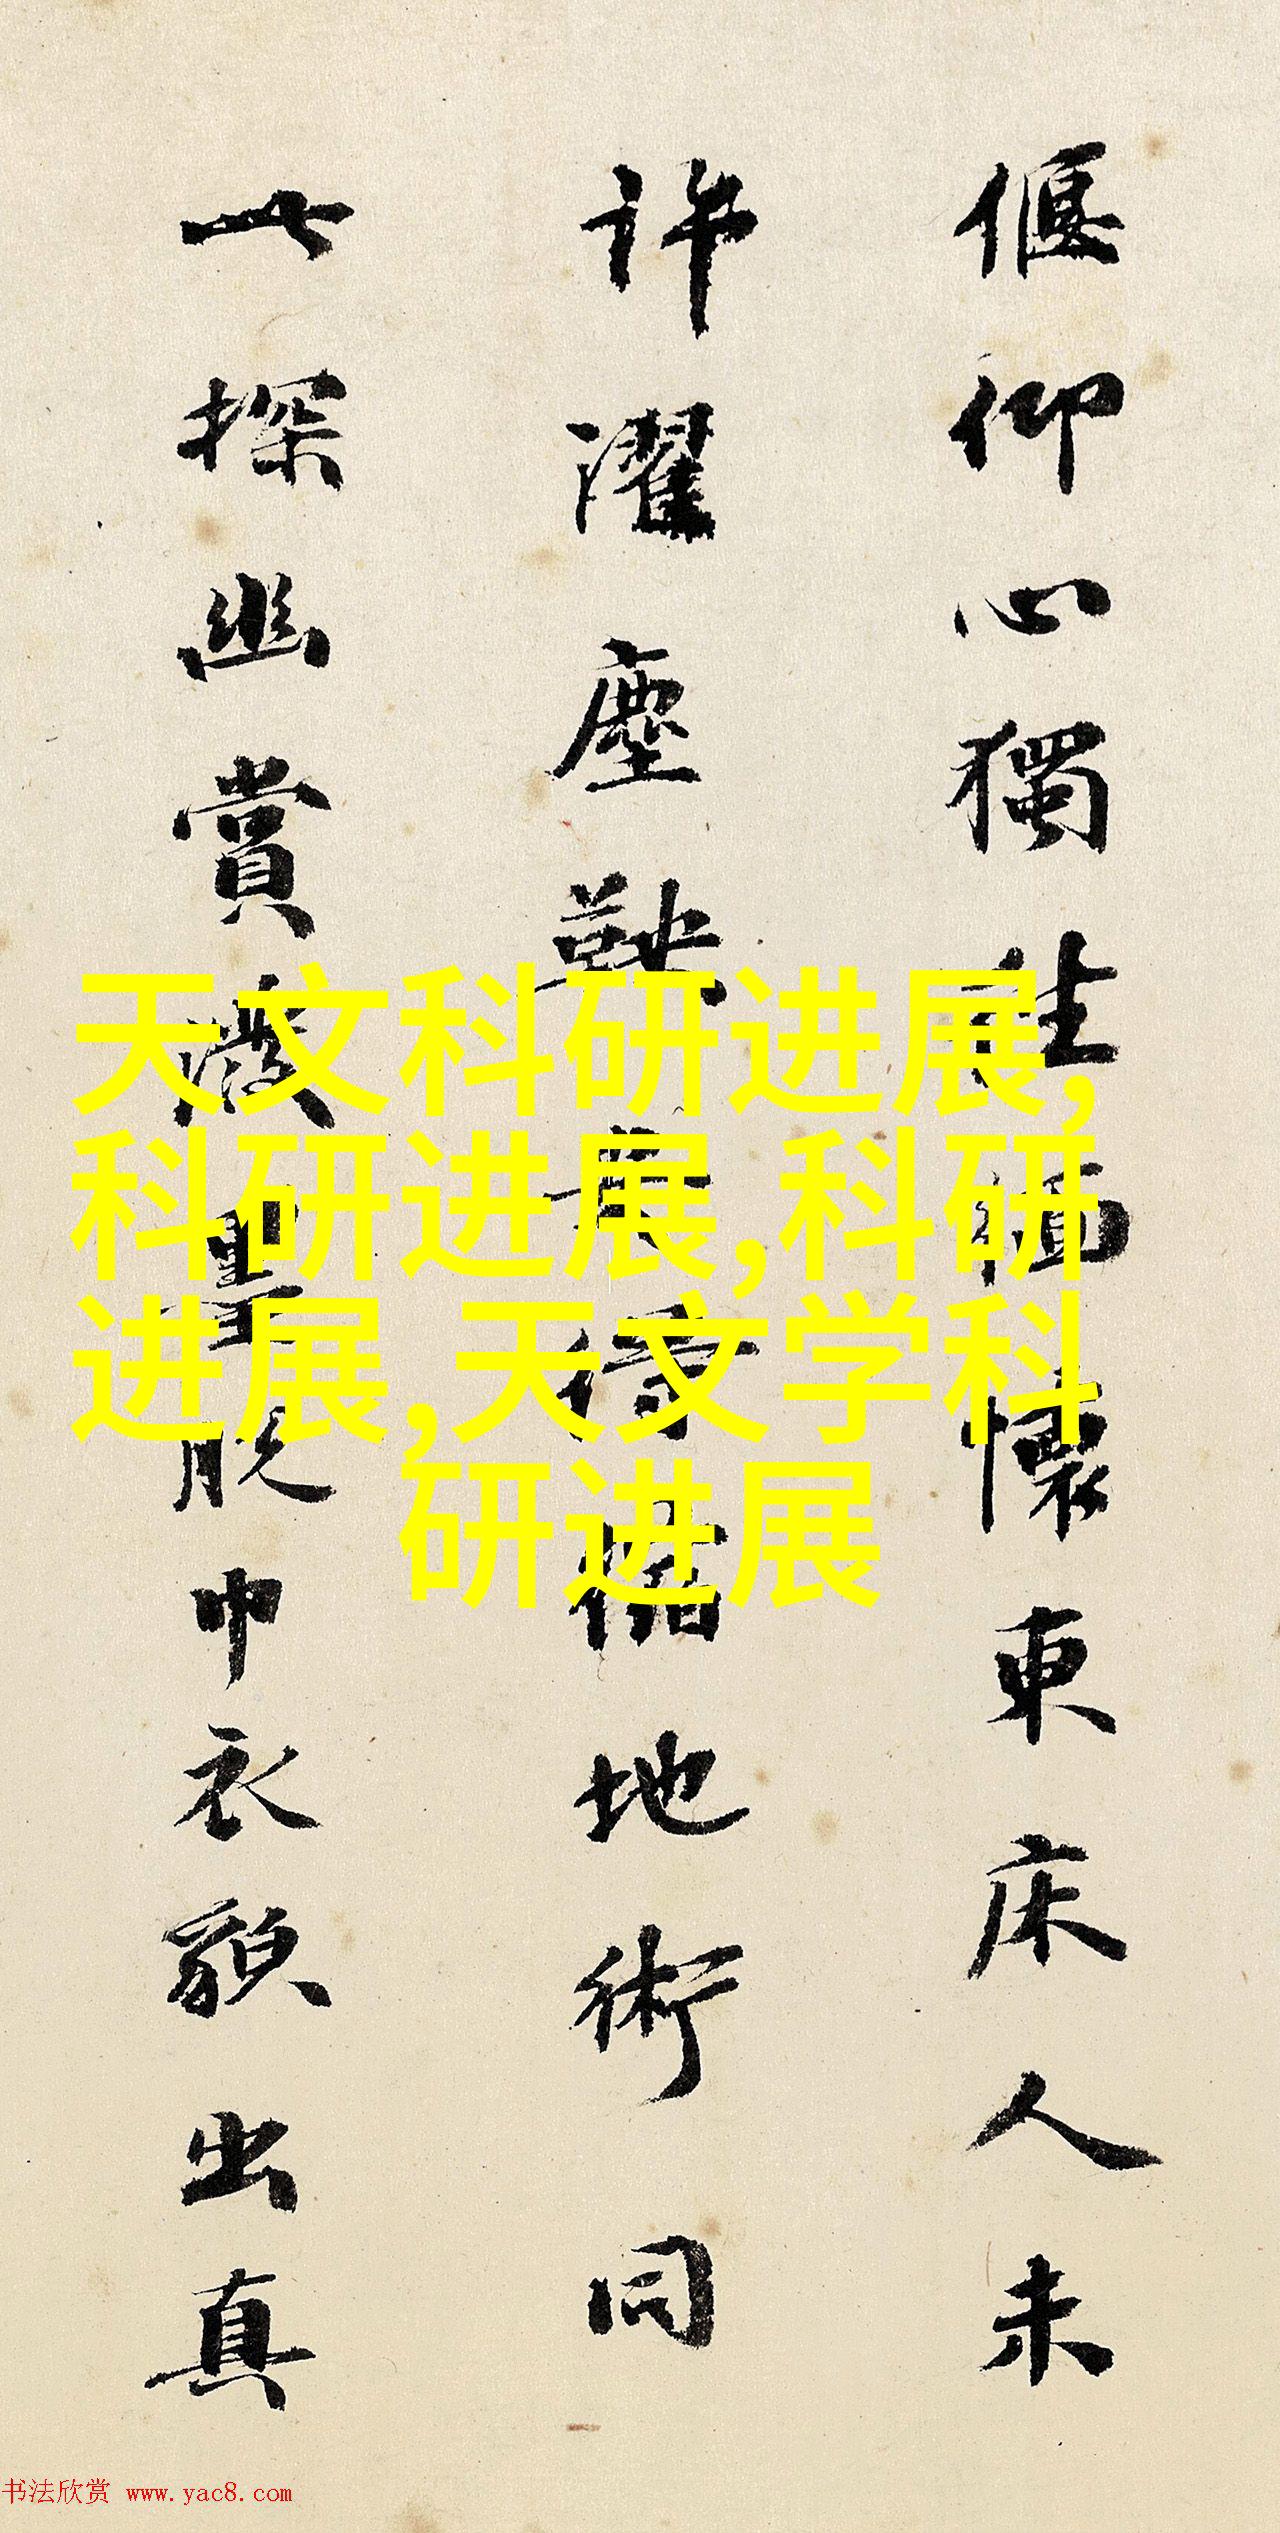 偃仰心獨往緬懷東床人未
許濯塵鞅地術同
探幽賞脫巾衣貌出真
天文科研进展,
科研进展,科研
进展,天文学科
研进展
书法欣赏 www.yac8.com